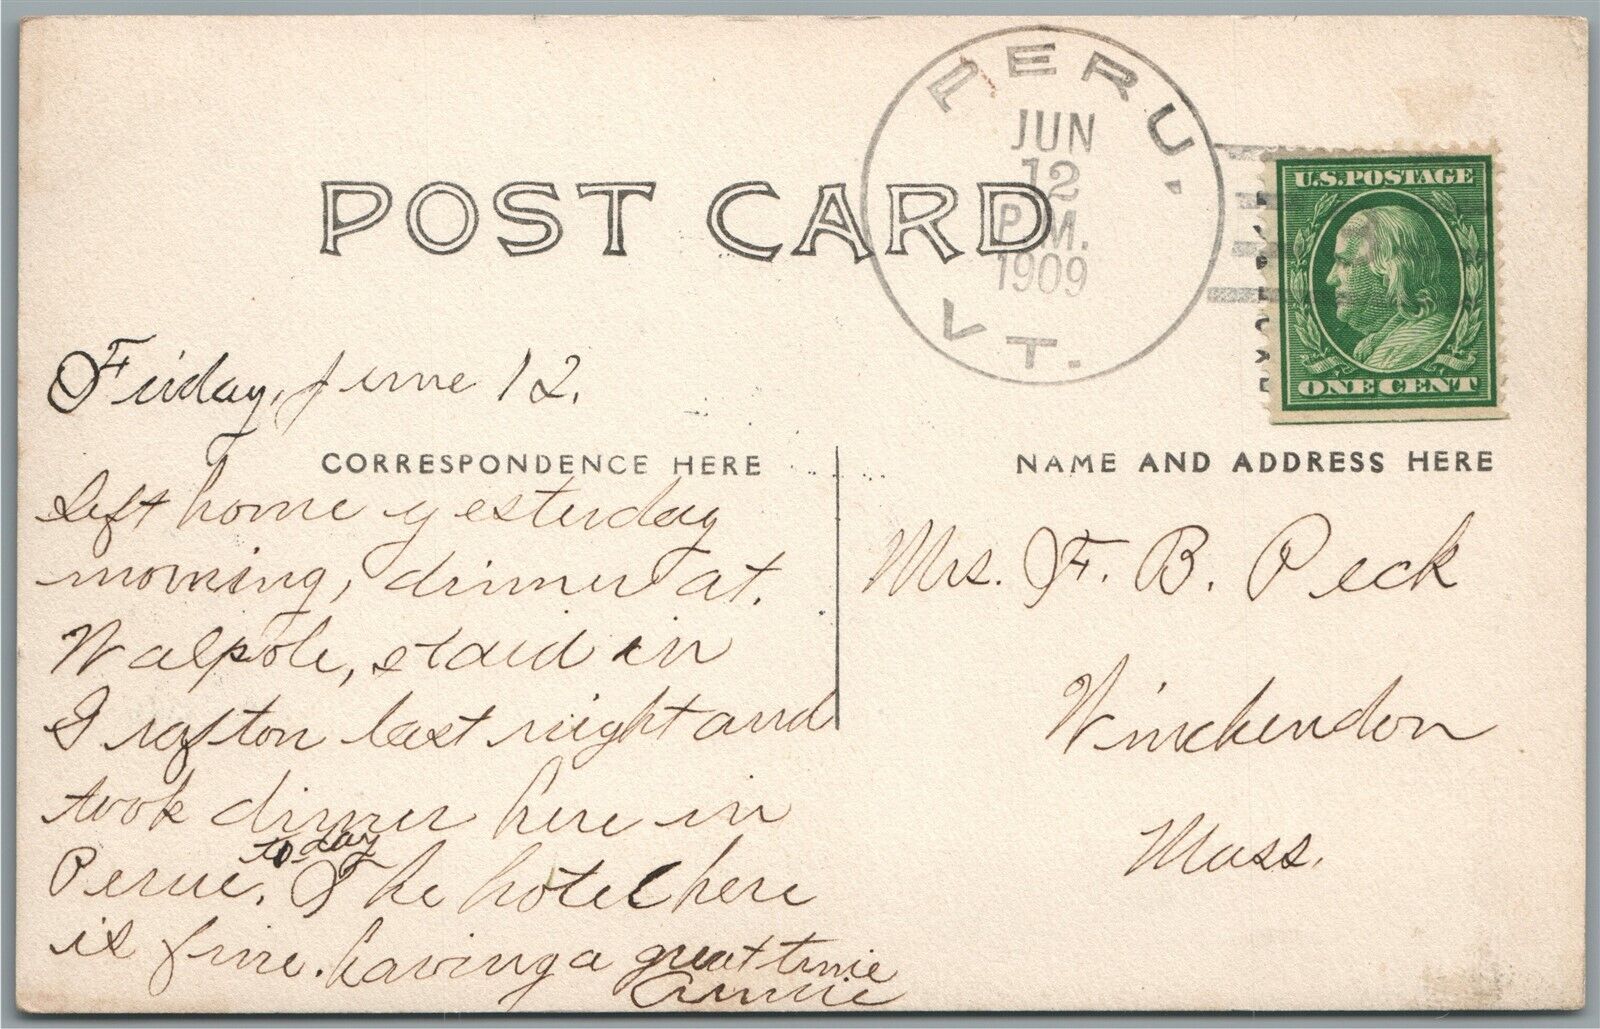 PERU,
VT.
JUN
12
P.M.
1909
U.S.POSTAGE
ONE CENT
POST CARD
Friday, June 12.
CORRESPONDENCE HERE
NAME AND ADDRESS HERE
left home yesterday
morning, dinner at.
Walpole, staid in
Grafton last night and
took dinner here in
to-day
Perue. The hotel here
is fine. having a great time
Annie
Mrs. F. B. Peck
Winchendon
Mass.